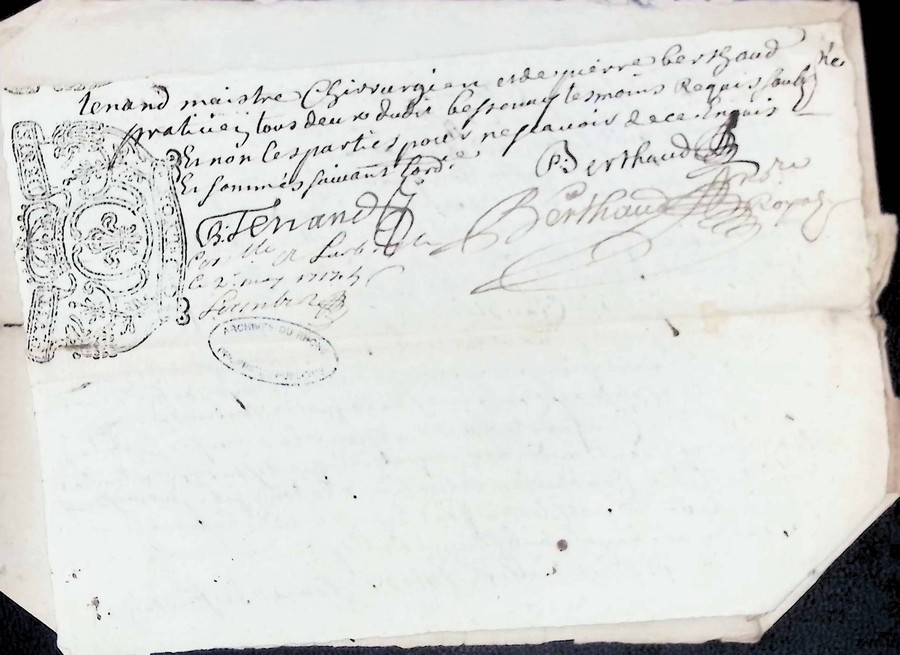 tenand maistre Chirurgien et de pierre berthaud
praticien tous deux dudit bessenay tesmoins Requis soubs
Et non les parties pour ne sçavoir de ce Enquis
Et sommés suivant lord.e
P. Berthaud
B. Tenand
Berthaud No.re Royal
Con.lle a Larbresle
le 2.e may 1717
ARCHIVES DU RHONE